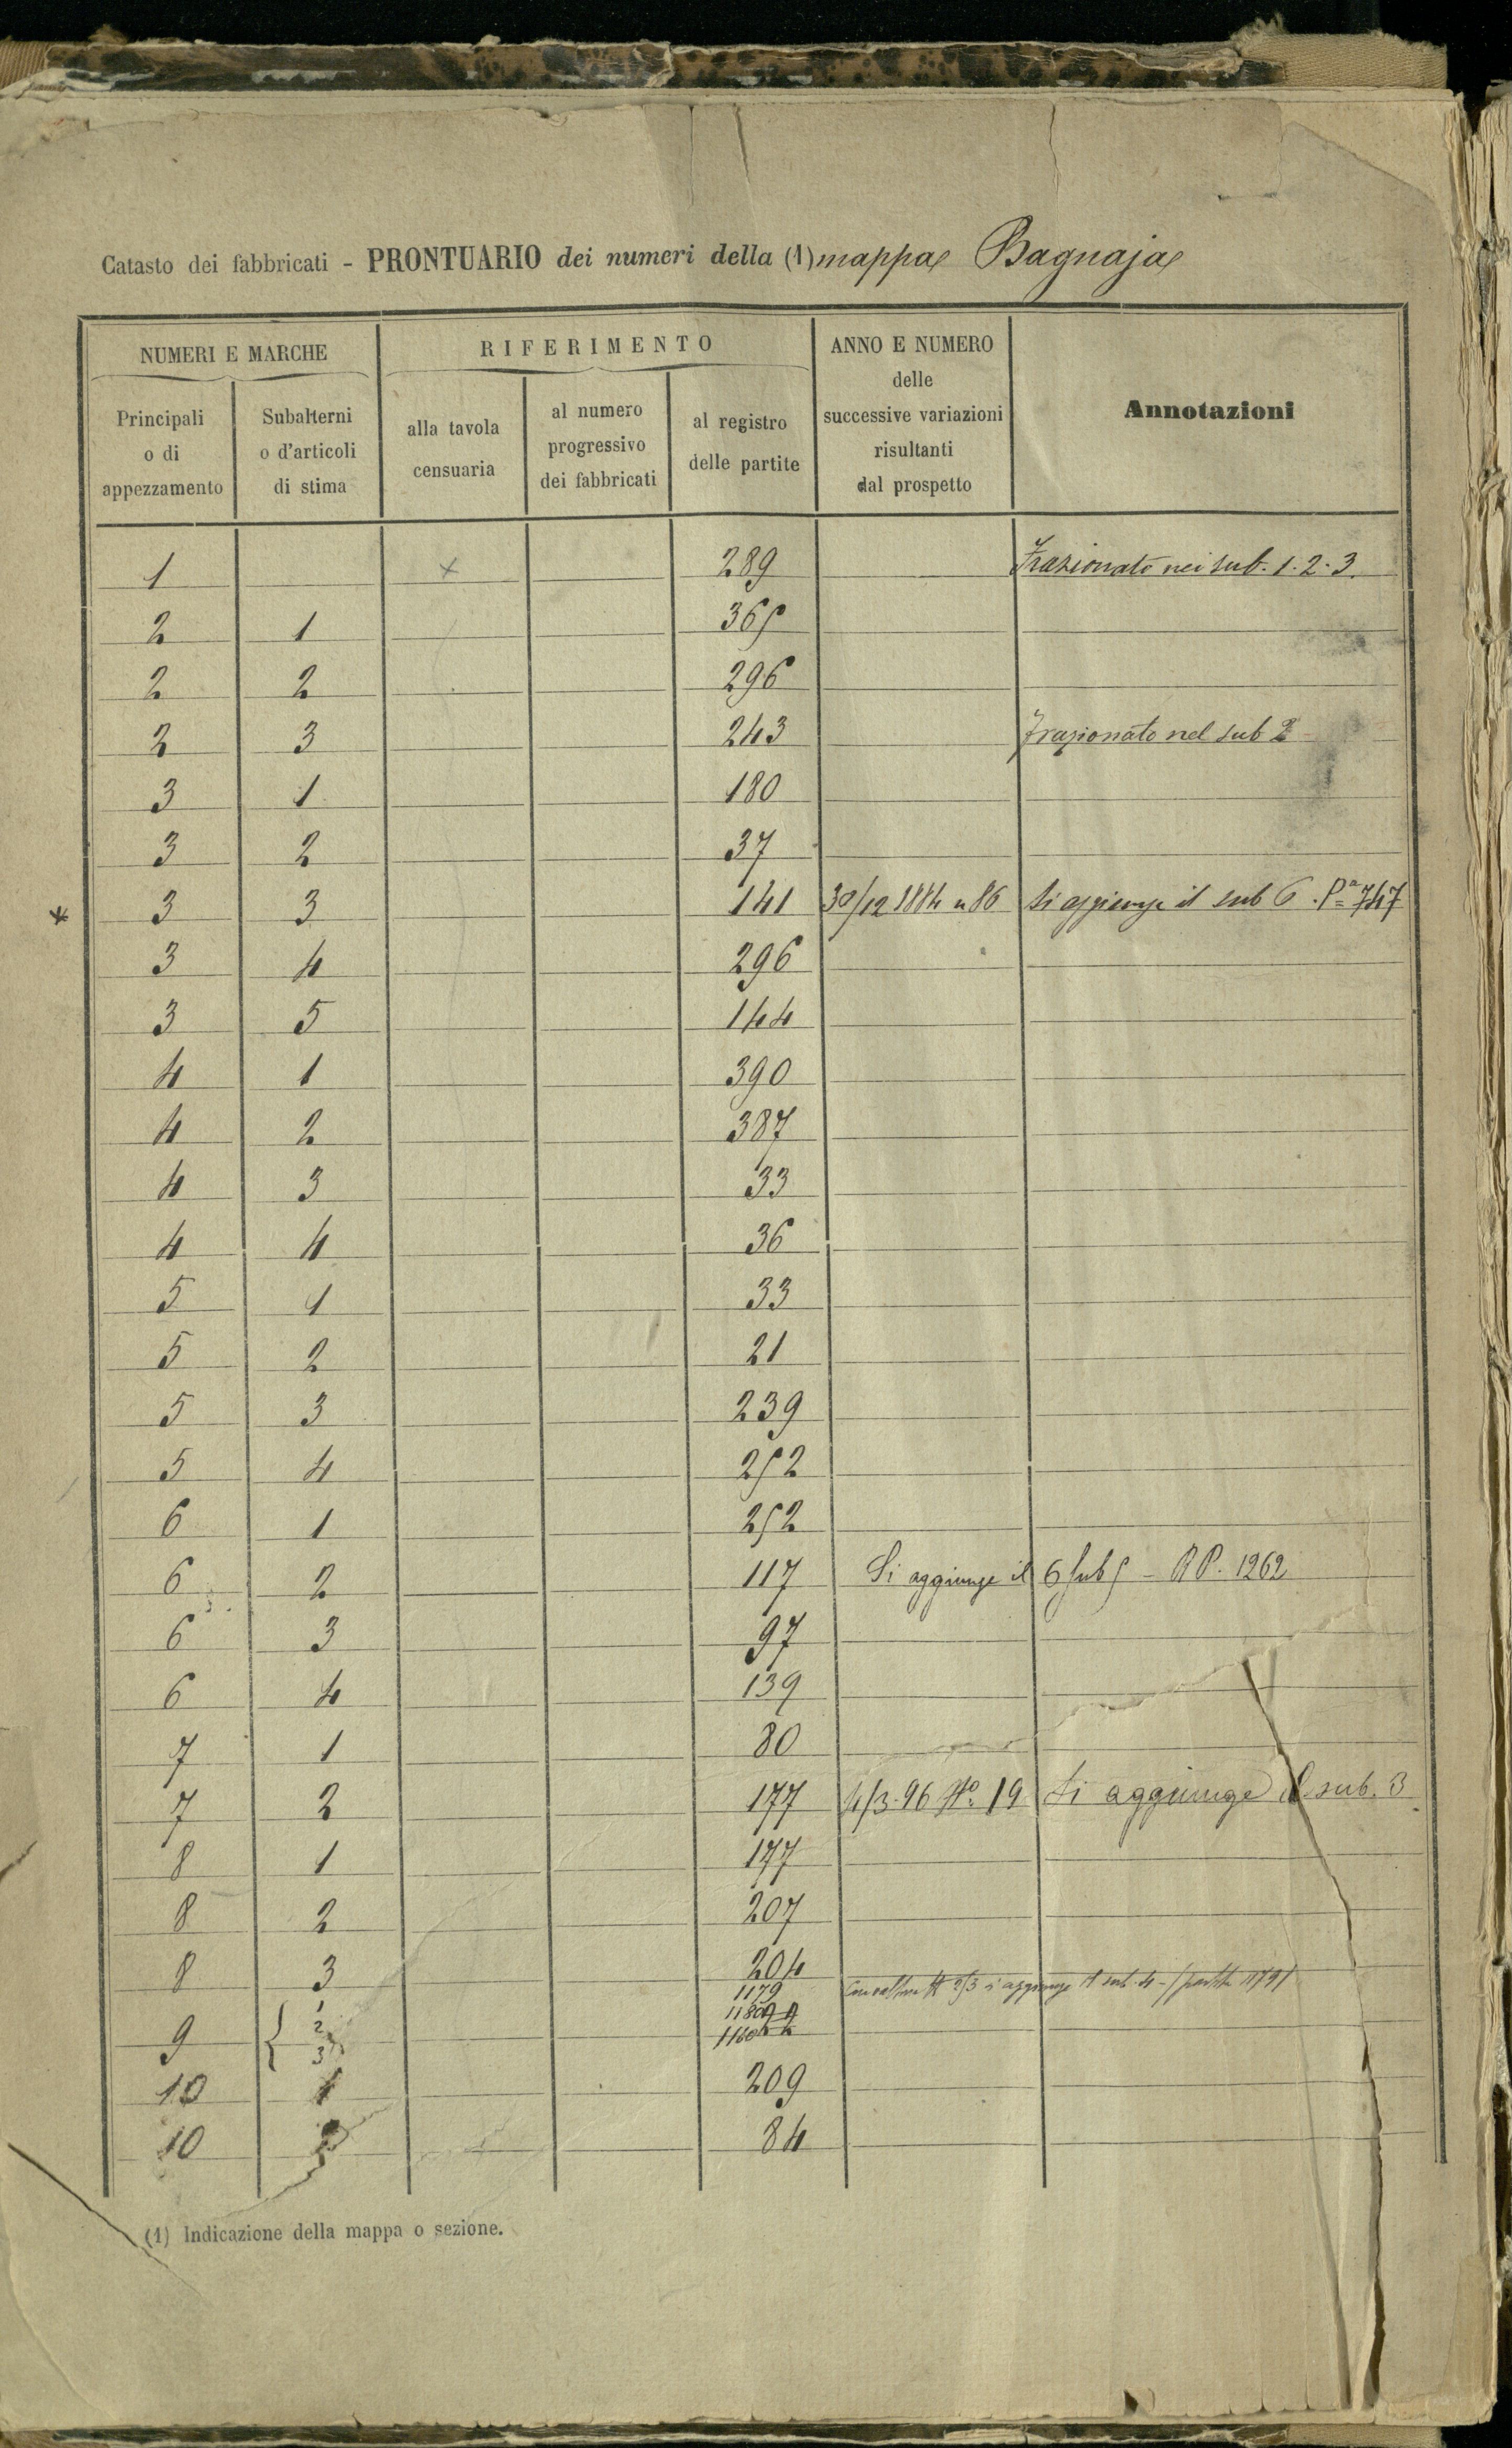 Catasto dei fabbricati - PRONTUARIO dei numeri della (1) mappa Bagnaja
NUMERI E MARCHE
RIFERIMENTO
ANNO E NUMERO
delle
successive variazioni
risultanti
dal prospetto
Annotazioni
Principali
o di
appezzamento
Subalterni
o d'articoli
di stima
alla tavola
censuaria
al numero
progressivo
dei fabbricati
al registro
delle partite
1 x 289 Frazionato nei sub. 1. 2. 3.
2 1 365
2 2 296
2 3 243 Frazionato nel sub 2
3 1 180
3 2 37
* 3 3 141 30/12 1884 n 86 Si aggiunge il sub 6. Pa 747
3 4 296
3 5 144
4 1 390
4 2 387
4 3 33
4 4 36
5 1 33
5 2 21
5 3 239
5 4 252
6 1 252
6 2 117 Si aggiunge il 6 sub 5 - RP. 1262
6 3 97
6 4 139
7 1 80
7 2 177 4/3-96 No. 19 Si aggiunge il sub. 3
8 1 177
8 2 207
8 3 204
1179 si aggiunge il sub. 4
9 { 1 2 3 1180 1160
10 1 209
10 2 84
(1) Indicazione della mappa o sezione.